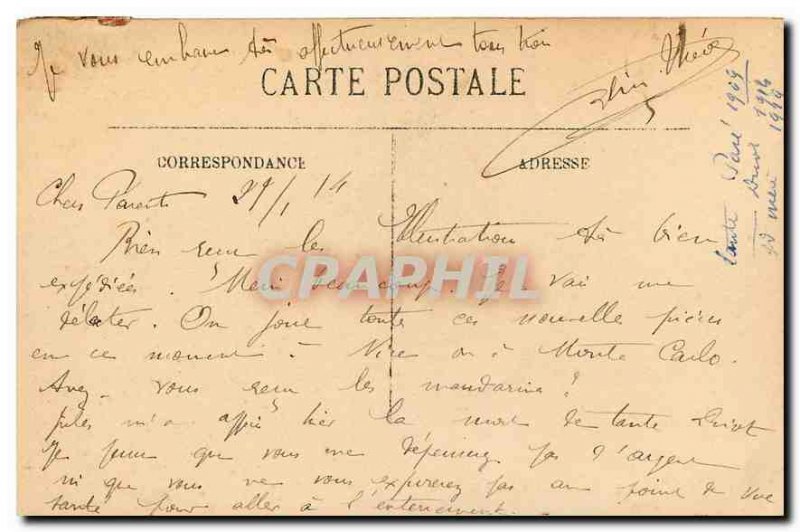 Je vous embrasse très affectueusement tous trois
CARTE POSTALE
CORRESPONDANCE
ADRESSE
Chers Parents 29/1 14
Bien reçu les Illustration très bien
expédiées. Merci beaucoup. Je vai me
délecter. On joue toute ces nouvelle pièces
en ce moment à Nice ou à Monte Carlo.
Avez-vous reçu les mandarine?
Jules m'a hier la mort de tante
Je pense que vous ne dépensez pas d'argent
ni que vous ne vous exposerez pas au point de vue
santé pour aller à l'enterrement.
CPARAMA
tante 1909
1916
gd mère 1949